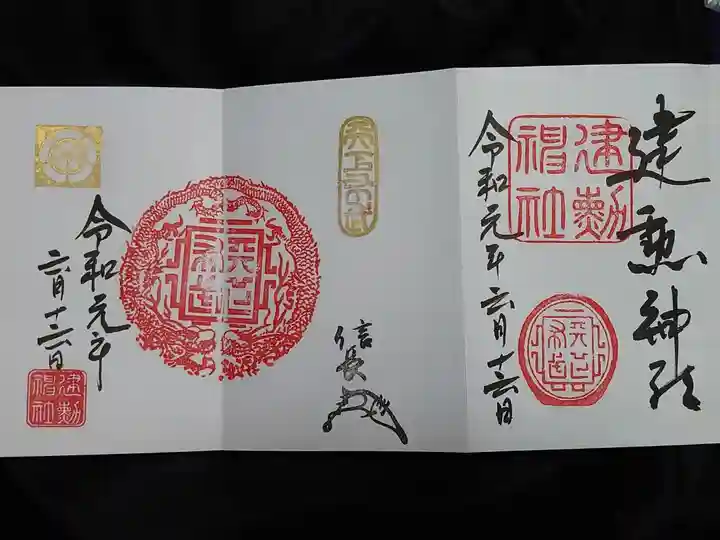 建勲神社
建勲
神社
令和元年六月十六日
天下布武
天下
布武
信長
天下
布武
令和元年
六月十六日
建勲
神社